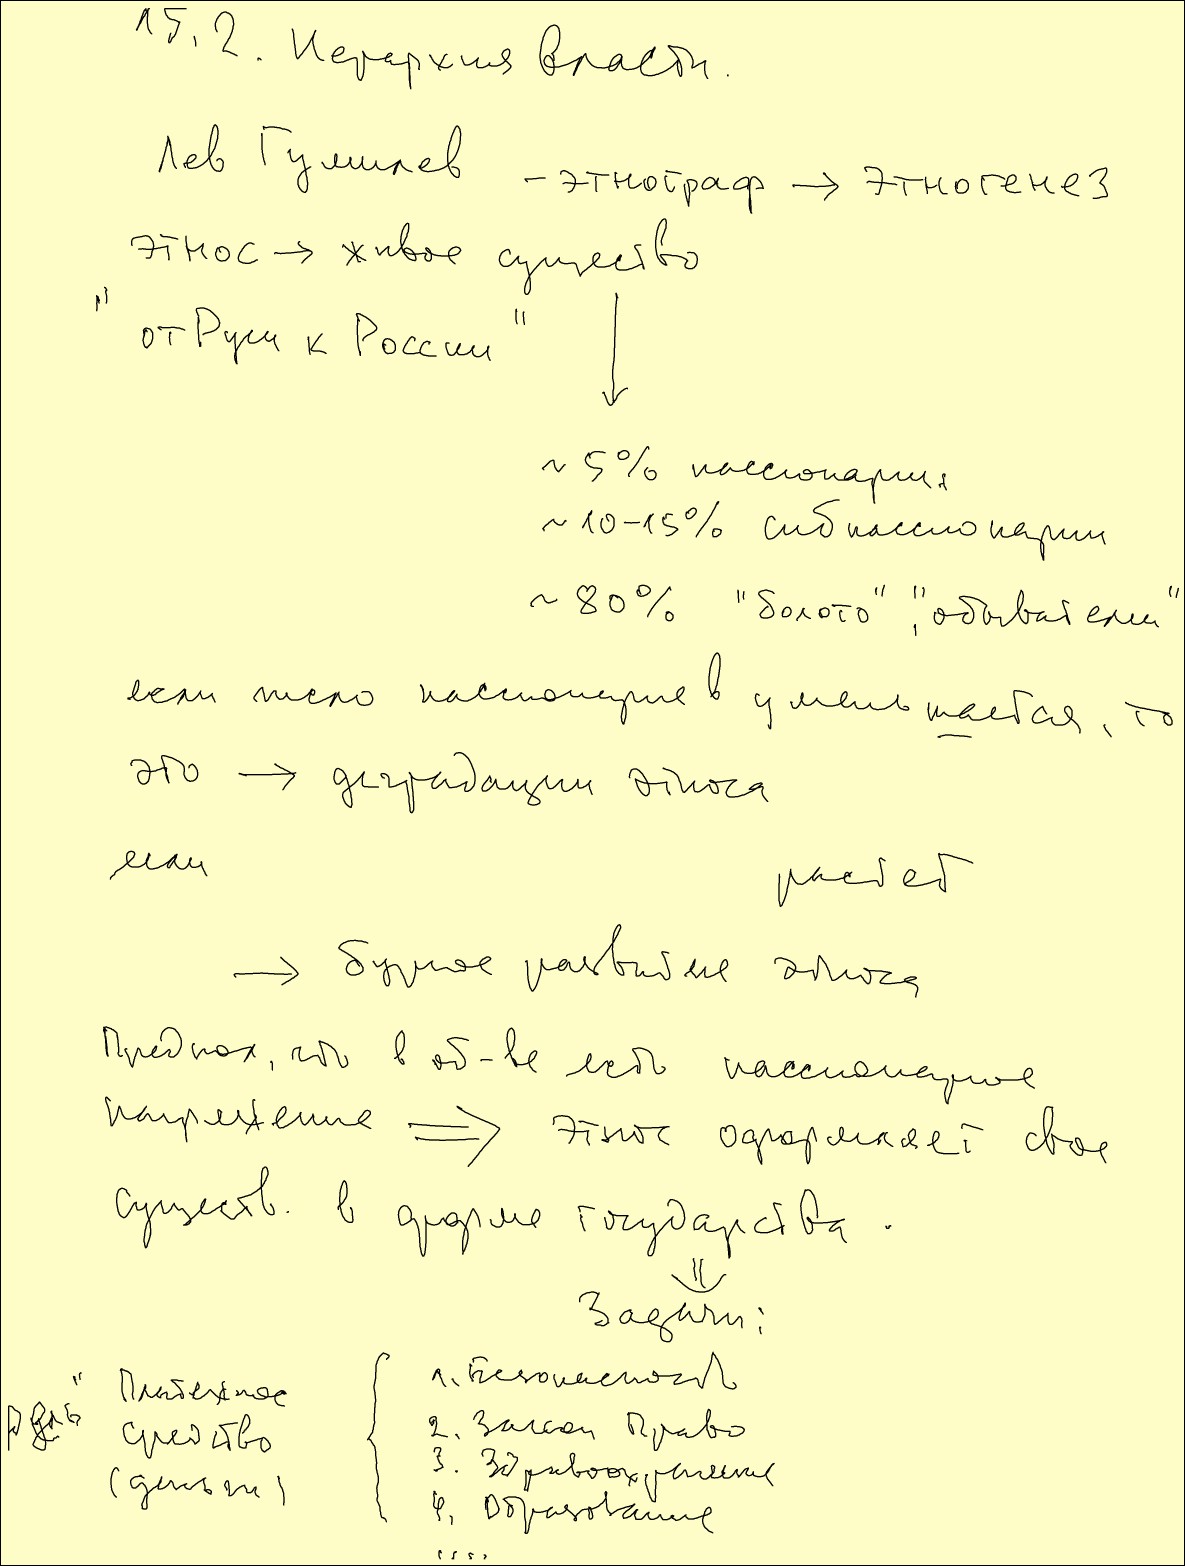 15.2. Иерархия власти.
Лев Гумилев - этнограф → этногенез
этнос → живое существо
"от Руси к России"
~ 5% пассионарии
~ 10-15% субпассионарии
~ 80% "болото", "обыватели"
если число пассионариев уменьшается, то
это → деградации этноса
если растет
→ бурное развитие этноса
Предпол, что в об-ве есть пассионарное
напряжение ⇒ Этнос оформляет свое
существ. в форме государства.
⇓
Задачи:
1. Безопасность
2. Закон Право
3. Здравоохранение
4. Образование
....
Платежное
средство
(деньги)